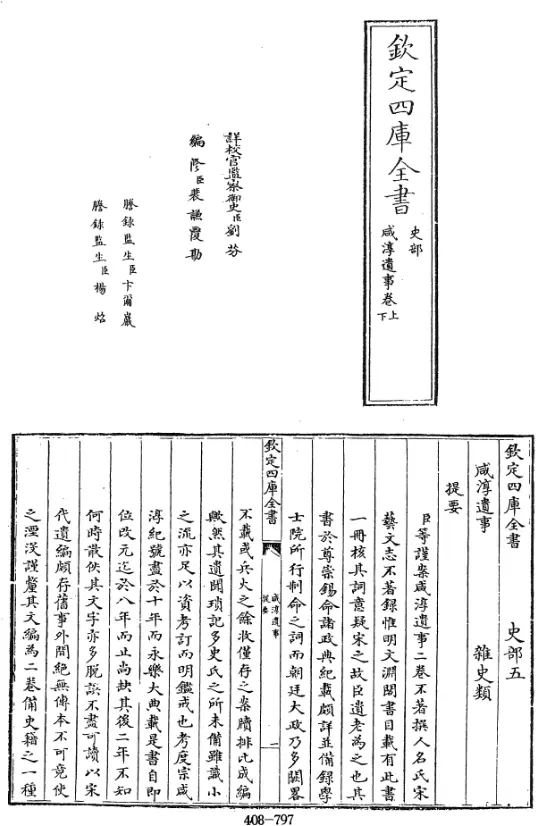 欽定四庫全書
史部
咸淳遺事卷上下
詳校官監察御史臣劉芬
編修臣裴謙覆勘
謄錄監生臣卞爾巖
謄錄監生臣楊
欽定四庫全書 史部五
咸淳遺事 雜史類
提要
臣等謹案咸淳遺事二卷不著撰人名氏宋
藝文志不著錄惟明文淵閣書目載有此書
一冊核其詞意疑宋之故臣遺老為之也其
書於尊崇錫命諸政典紀載頗詳並備錄學
士院所行制命之詞而朝廷大政乃多闕畧
欽定四庫全書
咸淳遺事
提要
一
不載或兵火之餘收僅存之案牘排比成編
歟然其遺聞瑣記多史氏之所未備雖識小
之流亦足以資考訂而明鑑戒也考度宗咸
淳紀號盡於十年而永樂大典載是書自即
位改元迄於八年而止尚缺其後二年不知
何時散佚其文字亦多脫誤不盡可讀以宋
代遺編頗存舊事外間絕無傳本不可竟使
之湮沒謹釐其文編為二卷備史籍之一種
408-797